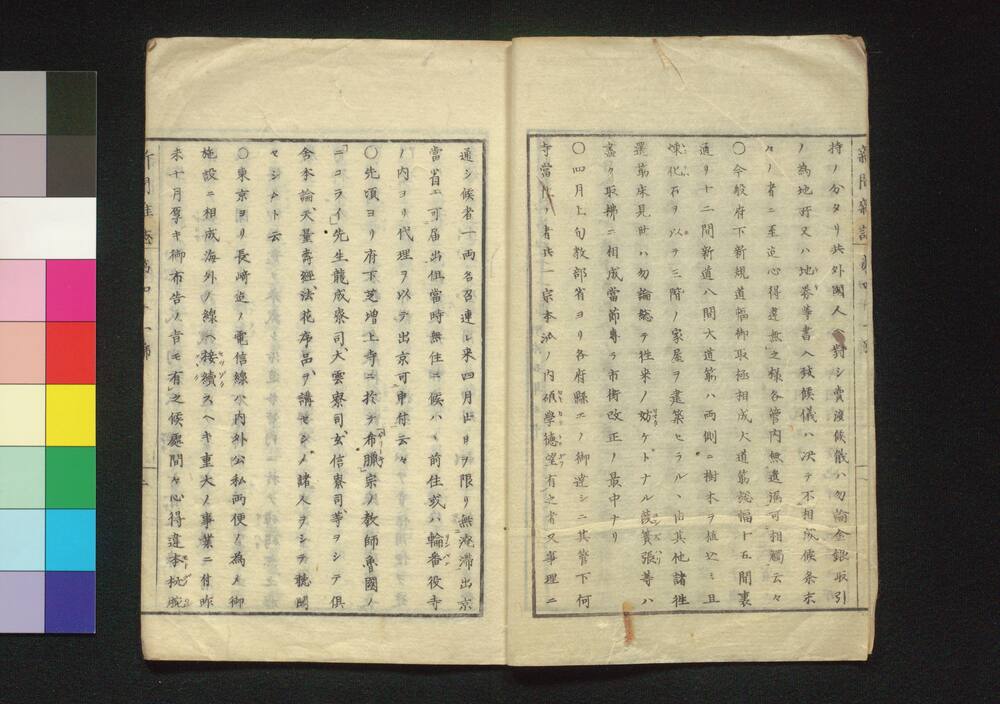 新聞雜誌
持ノ分タリ共外國人ヘ對シ賣渡候儀ハ勿論金銀取引
ノ為地所又ハ地券等書入致候儀ハ決テ不相成候条末
々ノ者ニ至迄心得違無之樣各管内無遺漏可相觸云々
〇今般府下新規道幅御取極相成大道筋總幅十五間裏
通リ十二間新道八間大道筋ハ両側ニ樹木ヲ植込ミ且
煉化石ヲ以テ三階ノ家屋ヲ建築セラルヽ由其他諸往
還筋床見世ハ勿論總テ往来ノ妨ケトナル葭簀張等ハ
盡ク取拂ニ相成當節専ラ市街改正ノ最中ナリ
〇四月上旬教部省ヨリ各府縣エノ御達シニ其管下何
寺當住ノ者共一宗本派ノ内碩學德望有之者又事理ニ
通シ候者一両名召連レ来四月廿日ヲ限リ無遲滞出京
當省エ可届出俱當時無住ニ候ハヽ前住或ハ輪番役寺
ノ内ヨリ代理ヲ以テ出京可申付云々
〇先頃ヨリ府下芝増上寺ニ於テ布臘宗ノ教師魯國ノ
「ニコライ」先生龍成寮司、大雲寮司、玄信寮司、等ヲシテ俱
舎本論、天、量壽經、法花序品、ヲ講セシメ諸人ヲシテ聴聞
セシムト云
〇東京ヨリ長崎迄ノ電信線ハ内外公私両便ノ為メ御
施設ニ相成海外ノ線ヘ接續スヘキ重大ノ事業ニ付昨
未十月厚キ御布告ノ旨モ有之候處間々心得違本杭腕